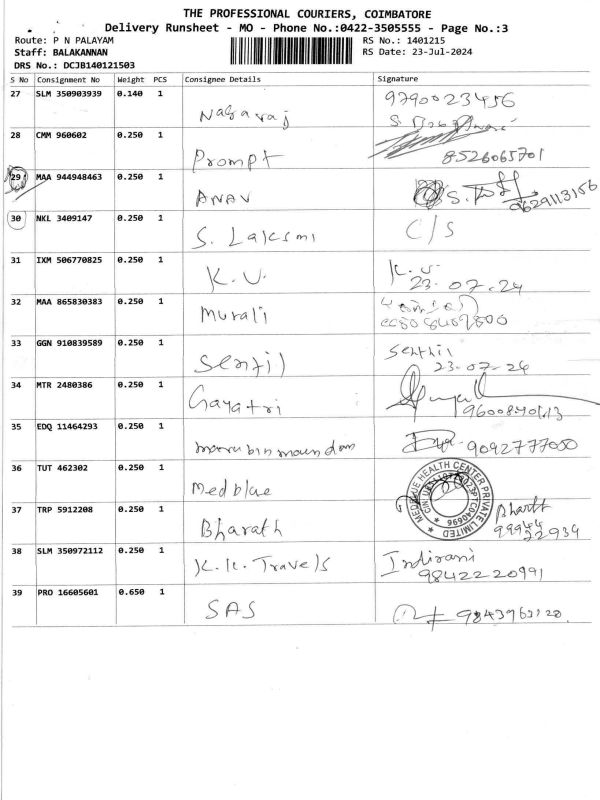 THE PROFESSIONAL COURIERS, COIMBATORE
Delivery Runsheet - MO - Phone No.:0422-3505555 - Page No.:3
Route: P N PALAYAM
RS No.: 1401215
Staff: BALAKANNAN
RS Date: 23-Jul-2024
DRS No.: DCJB140121503
S No Consignment No Weight PCS Consignee Details Signature
27 SLM 350903939 0.140 1 Nagaraj 9790023456
28 CMM 960602 0.250 1 Prompt 8526065701
29 MAA 944948463 0.250 1 ANAV 9629113156
30 NKL 3409147 0.250 1 S. Laksmi C/S
31 IXM 506770825 0.250 1 K.V. K.V
23-07-24
32 MAA 865830383 0.250 1 Murali
33 GGN 910839589 0.250 1 Senthil Senthil
23-07-24
34 MTR 2480386 0.250 1 Gayatri
35 EDQ 11464293 0.250 1 9092777000
36 TUT 462302 0.250 1 Medblue
37 TRP 5912208 0.250 1 Bharath Bharath
99944
22934
38 SLM 350972112 0.250 1 K.K. Travels Indirani
98422 20991
39 PRO 16605601 0.650 1 SAS